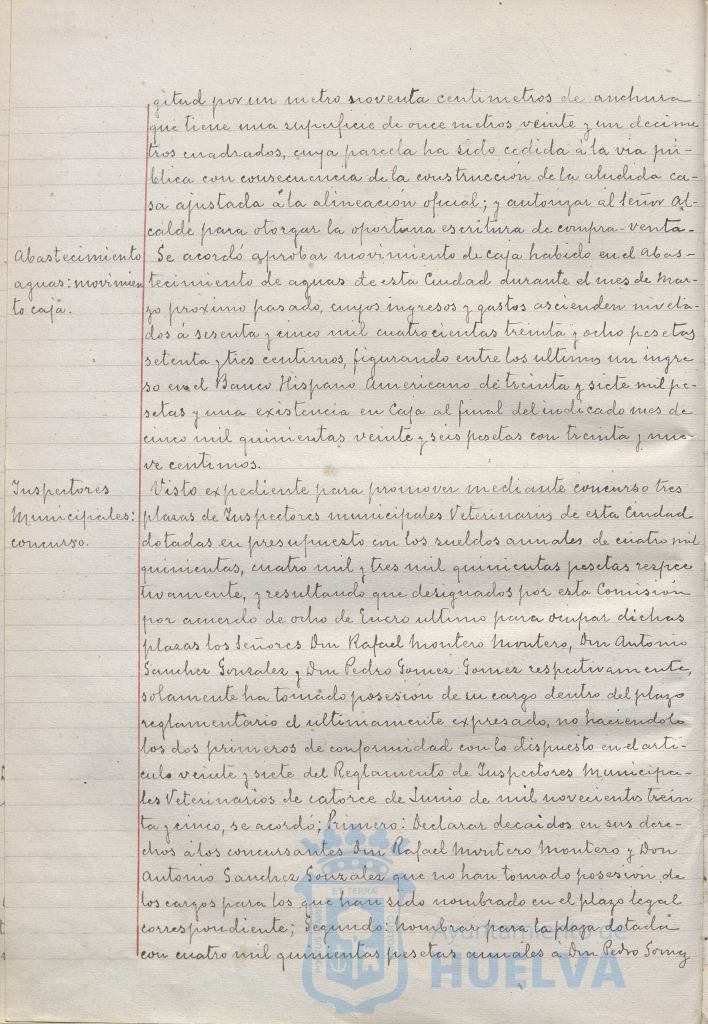 gitud por un metro noventa centimetros de anchura
que tiene una superficie de once metros veinte y un decime
tros cuadrados, cuya parcela ha sido cedida á la via pú-
blica con consecuencia de la construcción de la aludida ca-
sa ajustada á la alineación oficial; y autorizar al Señor Al-
calde para otorgar la oportuna escritura de compra-venta.
Abastecimiento
aguas: movimien
to caja.
Se acordó aprobar movimiento de caja habido en el abas-
tecimiento de aguas de esta Ciudad durante el mes de Mar-
zo proximo pasado, cuyos ingresos y gastos ascienden nivela-
dos á sesenta y cinco mil cuatrocientas treinta y ocho pesetas
setenta y tres centimos, figurando entre los ultimos un ingre-
so en el Banco Hispano Americano de treinta y siete mil pe-
setas y una existencia en Caja al final del indicado mes de
cinco mil quinientas veinte y seis pesetas con treinta y nue-
ve centimos.
Inspectores
Municipales:
concurso.
Visto expediente para promover mediante concurso tres
plazas de Inspectores municipales Veterinarios de esta Ciudad
dotadas en presupuesto con los sueldos annales de cuatro mil
quinientas, cuatro mil y tres mil quinientas pesetas respec
tivamente, y resultando que designados por esta Comisión
por acuerdo de ocho de Enero ultimo para ocupar dichas
plazas los Señores Don Rafael Montero Montero, Don Antonio
Sanchez Gonzalez y Don Pedro Gomez Gomez respectivamente,
solamente ha tomado posesion de su cargo dentro del plazo
reglamentario el ultimamente expresado, no haciendolo
los dos primeros de conformidad con lo dispuesto en el arti-
culo veinte y siete del Reglamento de Inspectores Municipa-
les Veterinarios de catorce de Junio de mil novecientos trein
ta y cinco, se acordó; Primero: Declarar decaidos en sus dere-
chos á los concursantes Don Rafael Montero Montero y Don
Antonio Sanchez Gonzalez que no han tomado posesión de
los cargos para los que han sido nombrado en el plazo legal
correspondiente; Segundo: Nombrar para la plaza dotada
con cuatro mil quinientas pesetas annales a Don Pedro Gomez
Ayuntamiento de
HUELVA